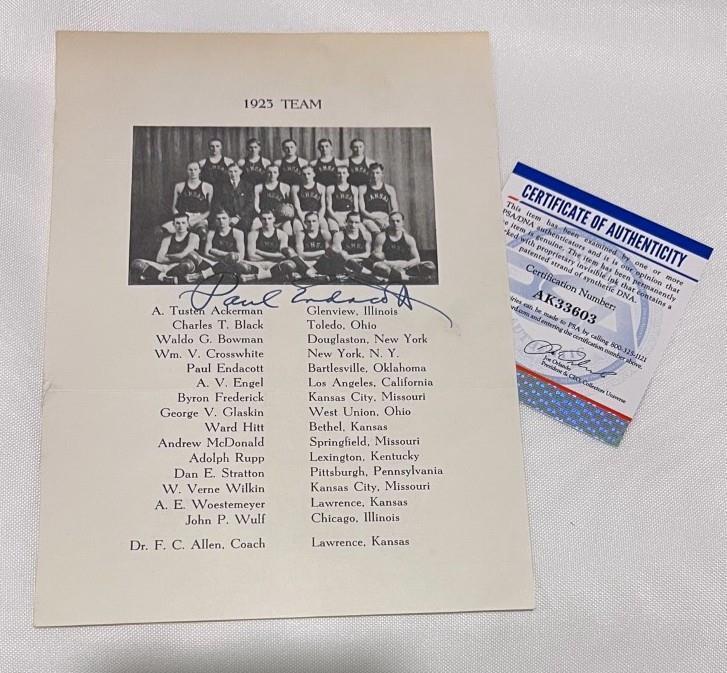 1923 TEAM
KANSAS
Paul Endacott
A. Tusten Ackerman Glenview, Illinois
Charles T. Black Toledo, Ohio
Waldo G. Bowman Douglaston, New York
Wm. V. Crosswhite New York, N. Y.
Paul Endacott Bartlesville, Oklahoma
A. V. Engel Los Angeles, California
Byron Frederick Kansas City, Missouri
George V. Glaskin West Union, Ohio
Ward Hitt Bethel, Kansas
Andrew McDonald Springfield, Missouri
Adolph Rupp Lexington, Kentucky
Dan E. Stratton Pittsburgh, Pennsylvania
W. Verne Wilkin Kansas City, Missouri
A. E. Woestemeyer Lawrence, Kansas
John P. Wulf Chicago, Illinois
Dr. F. C. Allen, Coach Lawrence, Kansas
CERTIFICATE OF AUTHENTICITY
This item has been examined by one or more
PSA/DNA authenticators and it is our opinion that
item is genuine. The item has been permanently
with proprietary invisible ink that contains a
patented strand of synthetic DNA.
Certification Number:
AK33603
can be made to PSA by calling 800-325-1121
and entering the certification number above.
Joe Orlando
President & CEO, Collectors Universe